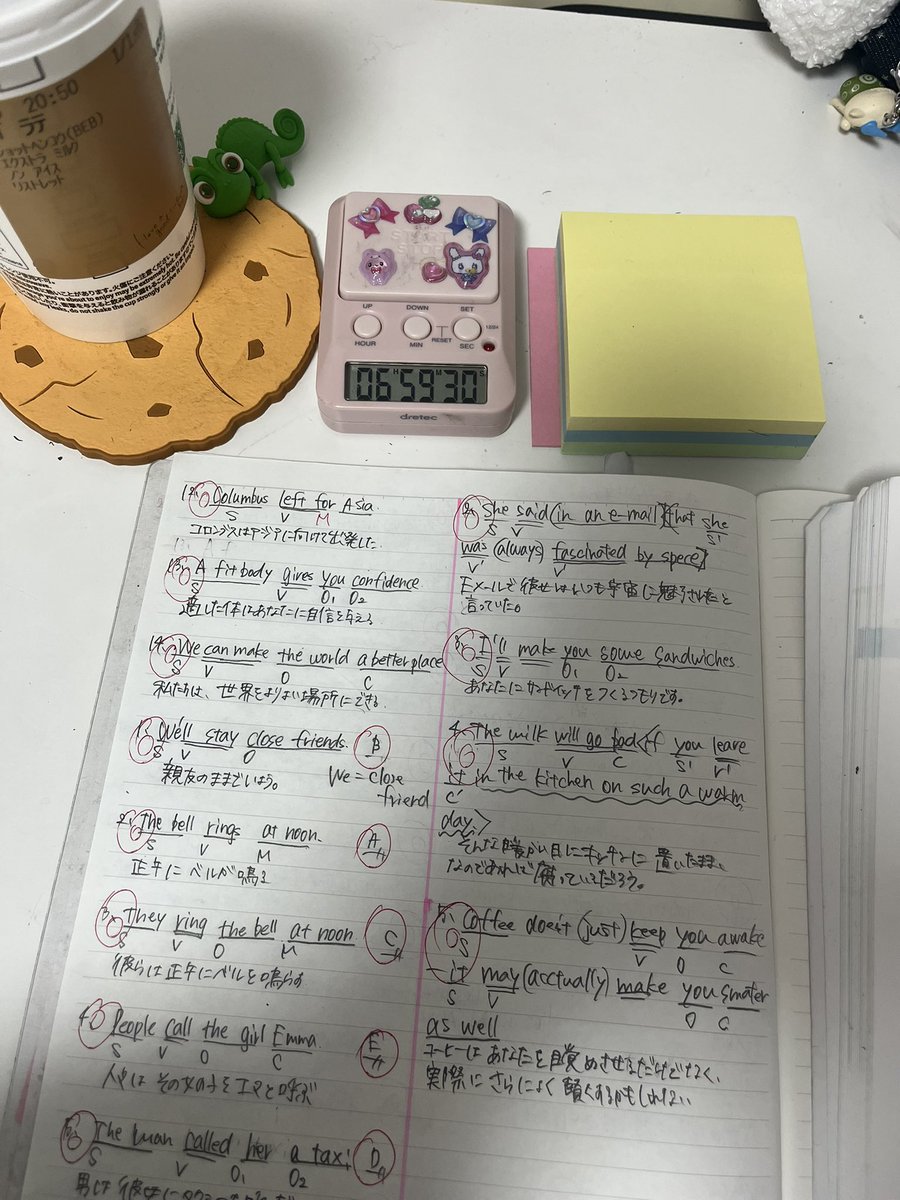 20:50
ラテ
エクストラ ミルク
ノン アイス
リストレット
UP
DOWN
SET
HOUR
MIN
RESET
SEC
06 59 30
dretec
12. Columbus left for Asia.
S V M
コロンブスはアジアに向けて出発した
13. A fit body gives you confidence.
S V O1 O2
適した体はあなたに自信を与える
14. We can make the world a better place
S V O C
私たちは、世界をよりよい場所にできる
1. We'll stay close friends. B
S V O
親友のままでいよう。 We = close
friend
2. The bell rings at noon. A
S V M
正午にベルが鳴る
3. They ring the bell at noon C
S V O M
彼らは正午にベルを鳴らす
4. People call the girl Emma. E
S V O C
人々はその女の子をエマと呼ぶ
5. The man called her a taxi D
S V O1 O2
男は彼女に
2. She said (in an e-mail) [that she
S V S'
was (always) fascinated by spece]
V' V
Eメールで彼女はいつも宇宙に魅了されたと
言っていた。
3. I'll make you some sandwiches.
S V O1 O2
あなたにサンドイッチをつくるつもりです。
4. The milk will go bad <if you leave
S V C S' V'
it in the kitchen on such a warm
day.>
そんな暖かい日にキッチンに置いたまま
なのであれば腐っているだろう。
5. Coffee doesn't (just) keep you awake
S V O C
it may (acctually) make you smater
S V O C
as well
コーヒーはあなたを目覚めさせるだけでなく、
実際にさらによく賢くするかもしれない